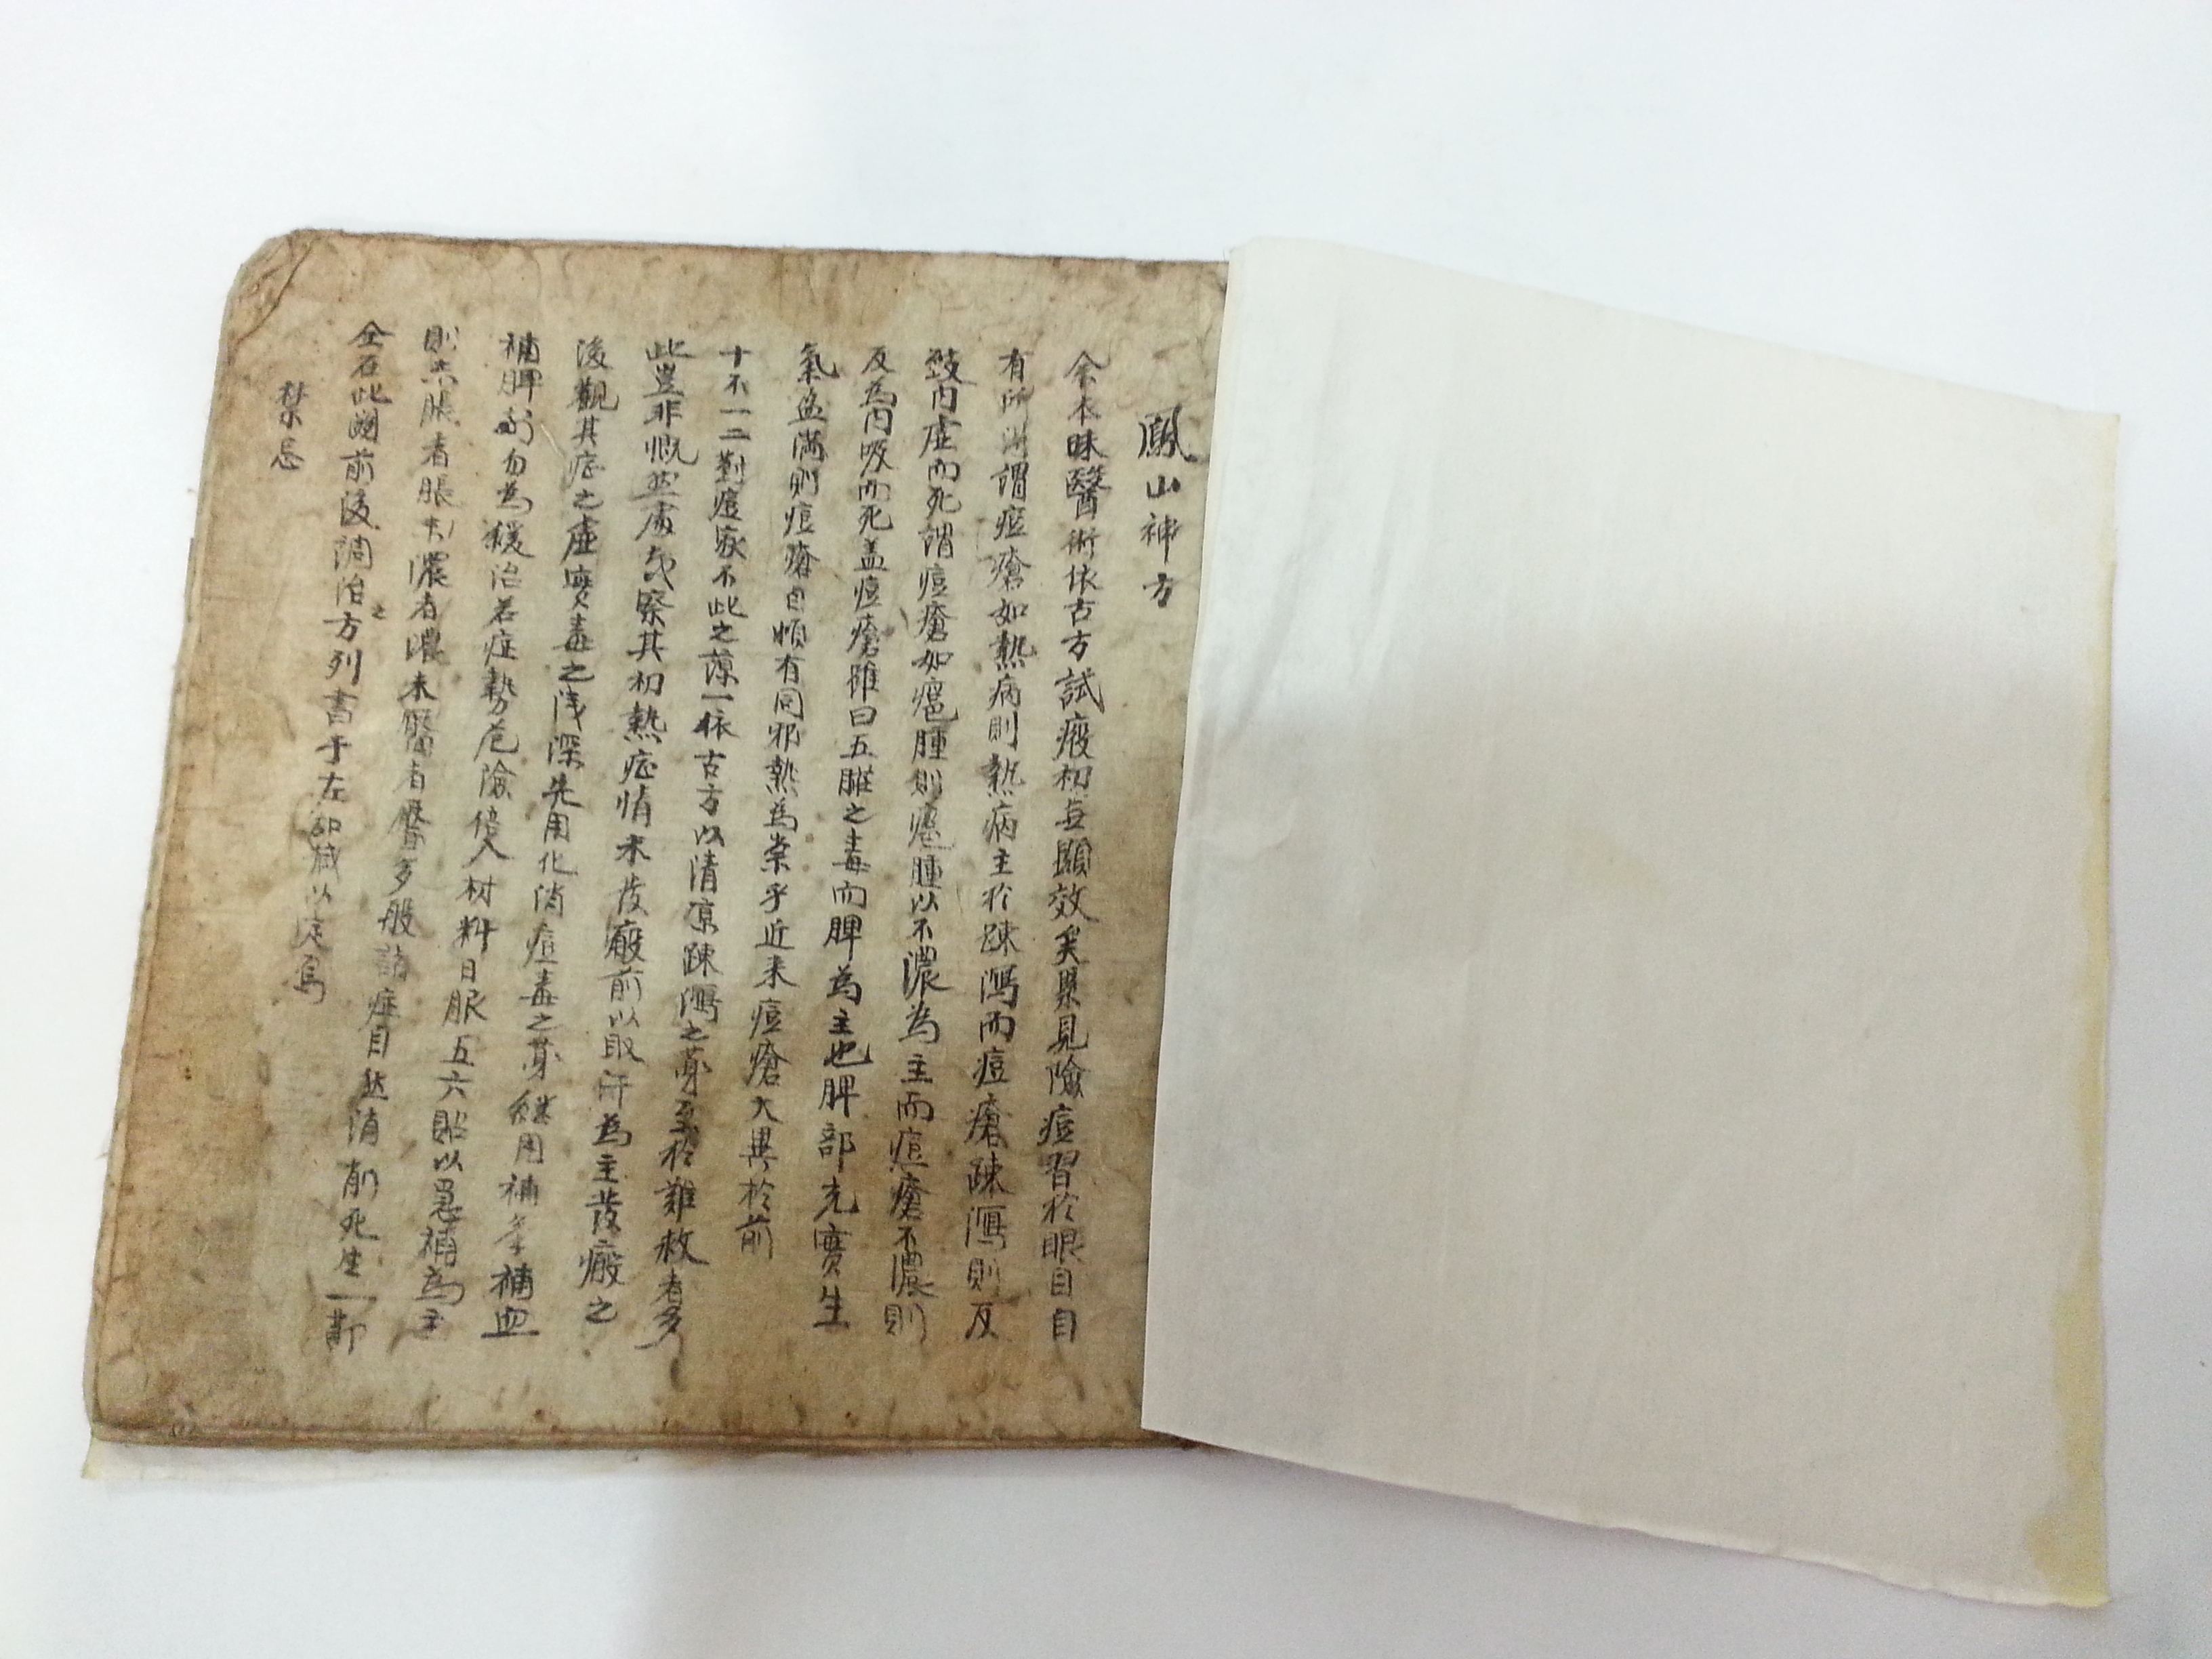 鳳山神方
余本昧醫術依古方試瘢初無顯效矣累見險痘習於眼目自
有所 謂痘瘡如熱病則熱病主於踈瀉而痘瘡踈瀉則反
致內虛而死謂痘瘡如瘡腫則瘡腫以不濃為主而痘瘡不濃則
反為內吸而死盖痘瘡雖曰五臟之毒而脾為主也脾部充實生
氣盈滿則痘瘡自順有同邪熱為祟乎近来痘瘡大異於前
十不一二對痘家不此之諒一依古方以清凉踈瀉之劑至於難救者多
此豈非慨然處或察其初熱症情未发瘢前以取汗為主發瘢之
後觀其症之虛實毒之浅深先用化消痘毒之劑継用補氣補血
補脾劑勿為緩治若症勢危險倍入材料日服五六貼以急補為主
則未脹者脹未濃者濃未靨者靨多般諸症自然消削死生一部
全在此関前後調治之方列書于左 减以定焉
禁忌